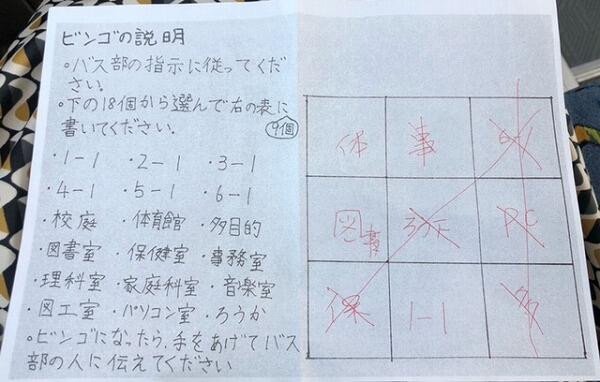 ビンゴの説明
○バス部の指示に従ってくだ
さい。
○下の18個から選んで右の表に
書いてください。 9個
・1-1 ・2-1 ・3-1
・4-1 ・5-1 ・6-1
・校庭 ・体育館 ・多目的
・図書室 ・保健室 ・事務室
・理科室 ・家庭科室 ・音楽室
・図工室 ・パソコン室 ・ろうか
○ビンゴになったら、手をあげてバス
部の人に伝えてください
体 事
図 PC
保 1-1 多